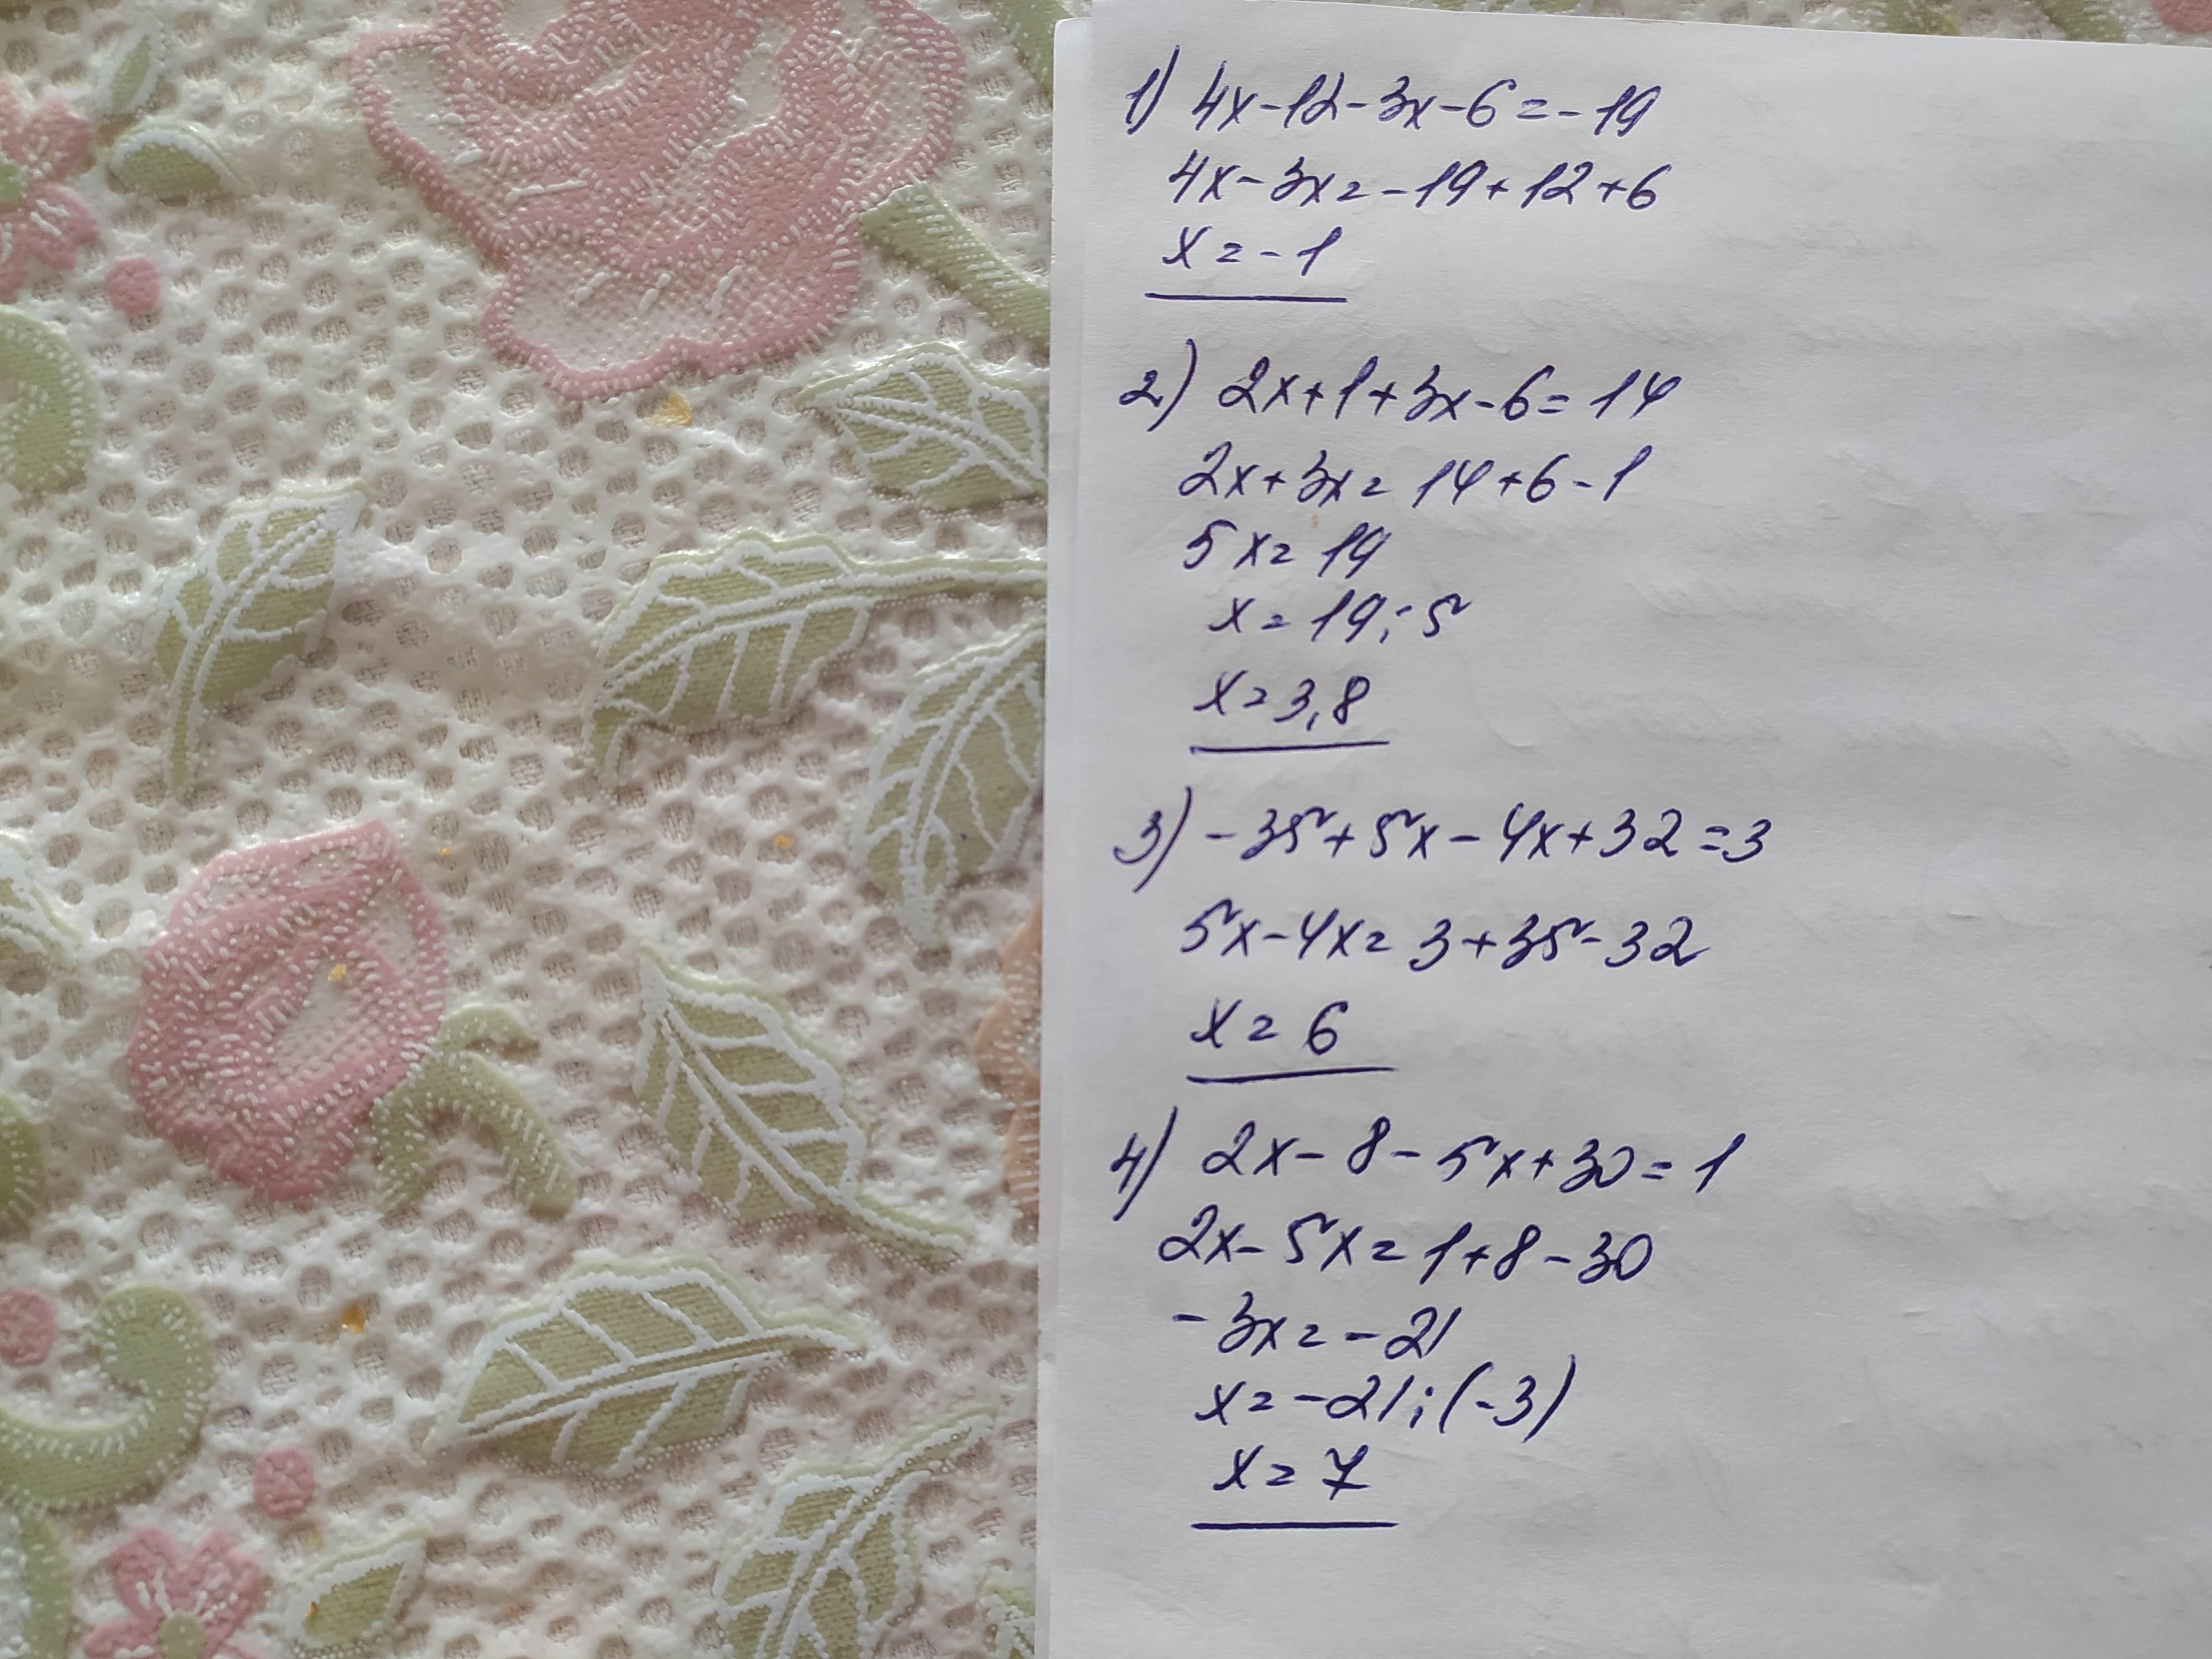 1) 4x-12-3x-6=-19
4x-3x=-19+12+6
x=-1
2) 2x+1+3x-6=14
2x+3x=14+6-1
5x=19
x=19:5
x=3,8
3) -35+5x-4x+32=3
5x-4x=3+35-32
x=6
4) 2x-8-5x+30=1
2x-5x=1+8-30
-3x=-21
x=-21:(-3)
x=7